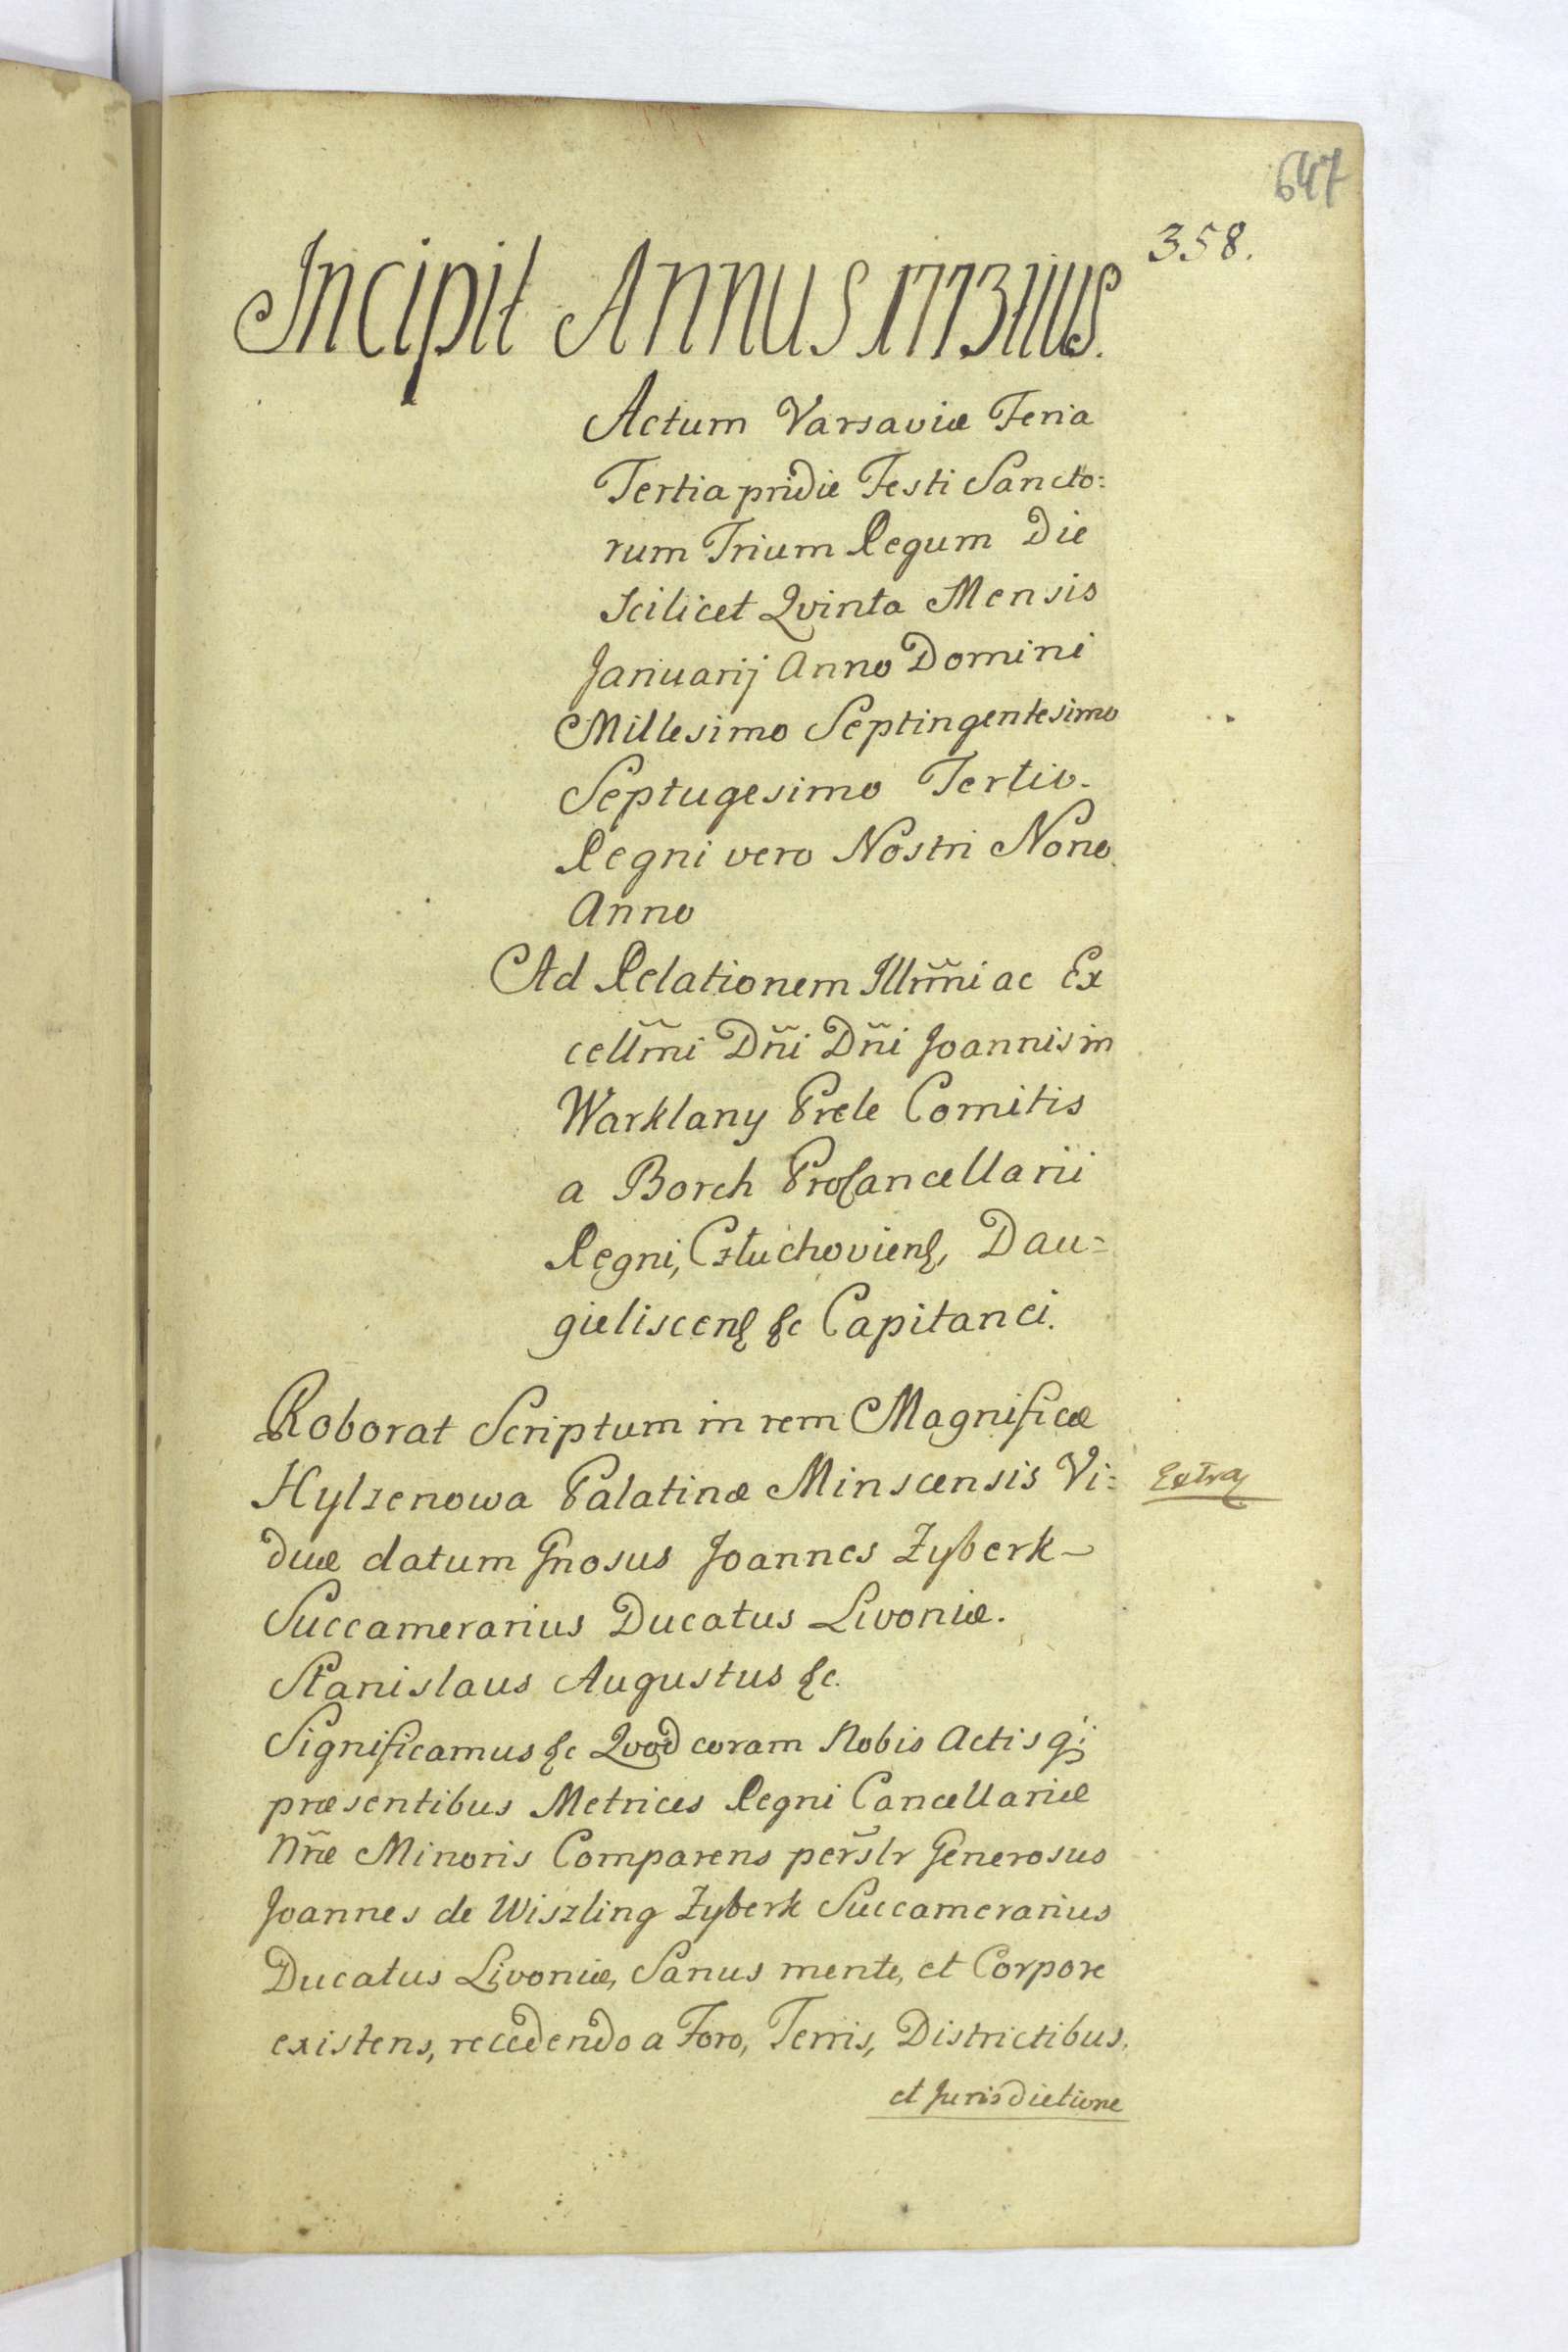 647
358.
Incipit Annus 1773tius.
Actum Varsaviæ Feria
Tertia pridie Festi Sancto:
rum Trium Regum Die
scilicet Qvinta Mensis
Januarij Anno Domini
Millesimo Septingentesimo
Septugesimo Tertio.
Regni vero Nostri Nono
Anno
Ad Relationem Illm̃i ac Ex
cellm̃i Dñi Dñi Joannis in
Warklany Prele Comitis
a Borch ProCancellarii
Regni, Człuchoviens, Dau=
gieliscens &c Capitanei.
Roborat Scriptum in rem Magnificæ
Hylzenowa Palatinæ Minscensis Vi=
duæ datum Gnosus Joannes Zyberk
Succamerarius Ducatus Livoniæ.
Stanislaus Augustus &c.
Significamus &c Qvod coram Nobis Actisq;
præsentibus Metrices Regni Cancellariæ
Nr̃æ Minoris Comparens per̃slr Generosus
Joannes de Wiszling Zyberk Succamerarius
Ducatus Livoniæ, Sanus mente, et Corpore
existens, recedendo a Foro, Terris, Districtibus,
et Jurisdictione